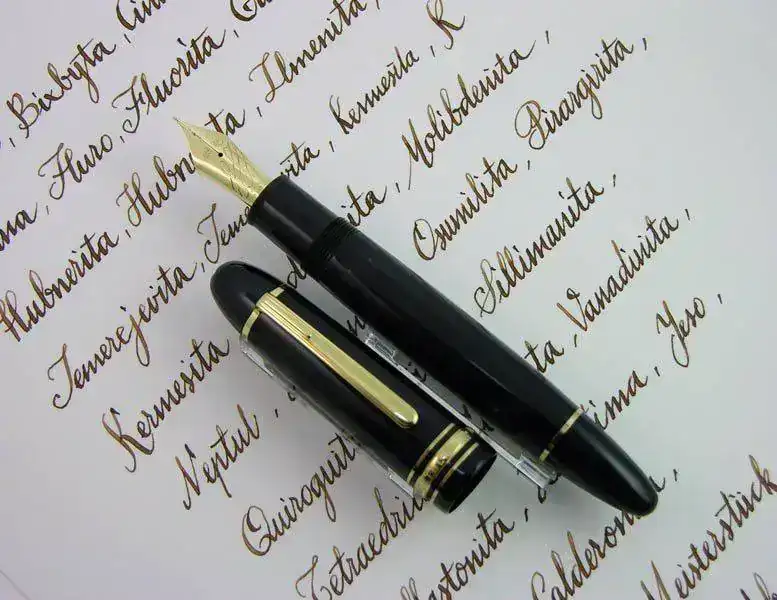 Bixbyta,
Fluro, Fluorita,
Hubnerita, Hubn ta, Ilmenita,
Jemerejevita, Jeme vita, Kermesita, K
Kermesita ita, Molibdenita,
Neptul, Osumilita, Pirargirita,
Quiroguit Sillimanita,
Tetraedri ta, Vanadinita,
lastonita, ima, Yeso,
Calderon
Meisterstück